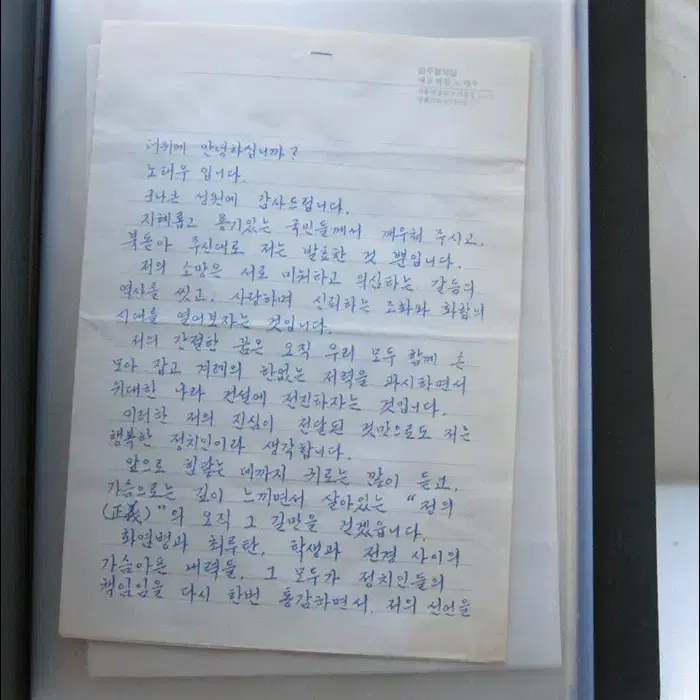 민주정의당
더위에 안녕하십니까?
노태우 입니다.
크나큰 성원에 감사드립니다.
지혜롭고 용기있는 국민들께서 깨우쳐 주시고,
북돋아 주신대로 저는 발표한 것 뿐입니다.
저의 소망은 서로 미워하고 의심하는 갈등의
역사를 씻고, 사랑하며 신뢰하는 조화와 화합의
시대를 열어보자는 것입니다.
저의 간절한 꿈은 오직 우리 모두 함께 손
모아 잡고 겨레의 한없는 저력을 과시하면서
위대한 나라 건설에 전진하자는 것입니다.
이러한 저의 진심이 전달된 것만으로도 저는
행복한 정치인이라 생각합니다.
앞으로 힘닿는 데까지 귀로는 많이 듣고,
가슴으로는 깊이 느끼면서 살아있는 "정의
(正義)"의 오직 그 길만을 걷겠읍니다.
화염병과 최루탄, 학생과 전경 사이의
가슴아픈 대력들, 그 모두가 정치인들의
책임임을 다시 한번 통감하면서, 저의 선언을